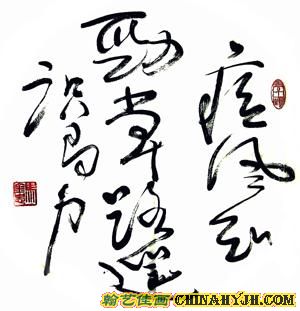 疾风知
劲草路遥
识马力
翰艺佳画 CHINAHYJH.COM